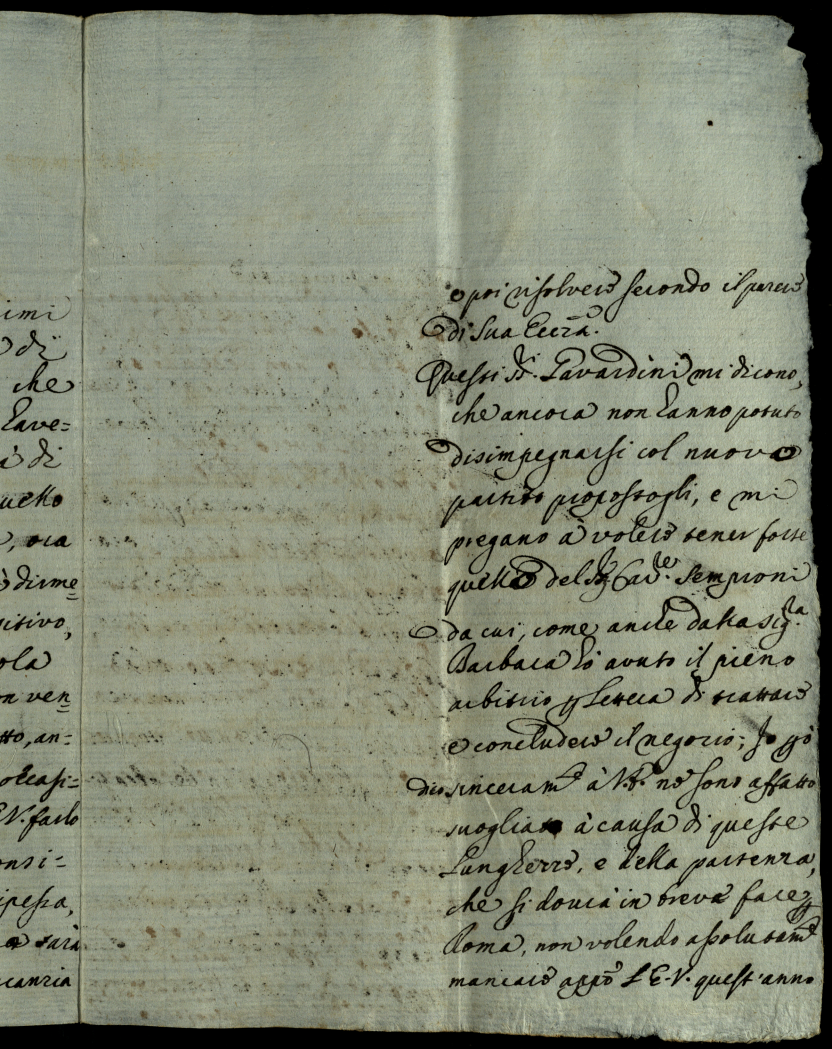 imi
di
che
have=
à di
uello
, ora
dirme
sitivo,
ola
on ven
tto, an=
occasi=
E.V. farlo
onsi=
ipessa,
sarà
canzia
e poi risolvere secondo il parere
di Sua Ecc.za.
Questi SS.i Pavardini mi dicono,
che ancora non hanno potuto
disimpegnarsi col nuovo
partito propostogli, e mi
pregano à volere tener forte
quello del Sig.r Cav.re Sempioni
da cui, come anche dalla Sig.ra
Barbara hò avuto il pieno
arbitrio p lettera di trattare
e concludere il negozio; Io pò
dico sinceram.te à V.E. ne sono affatto
svogliato à causa di queste
lungherie, e della partenza,
che si dovrà in breve fare p
Roma, non volendo assolutam.te
mancare appo l'E.V. quest'anno